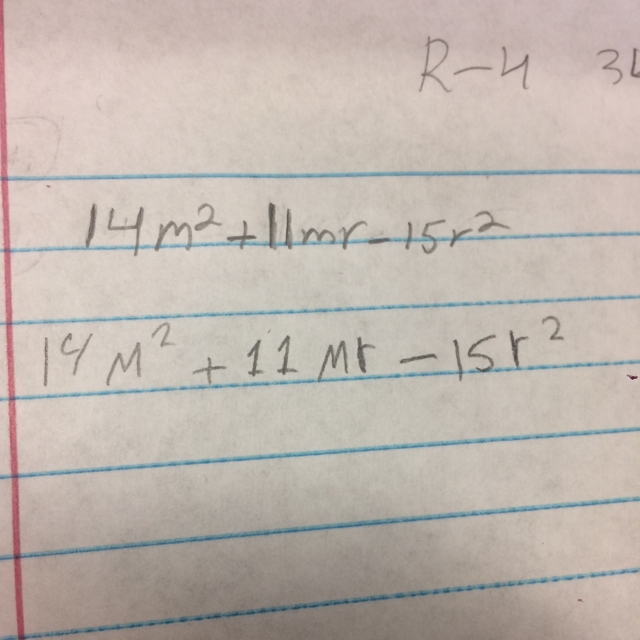 R-4 3
14m²+11mr-15r²
14M² +11Mr -15r²